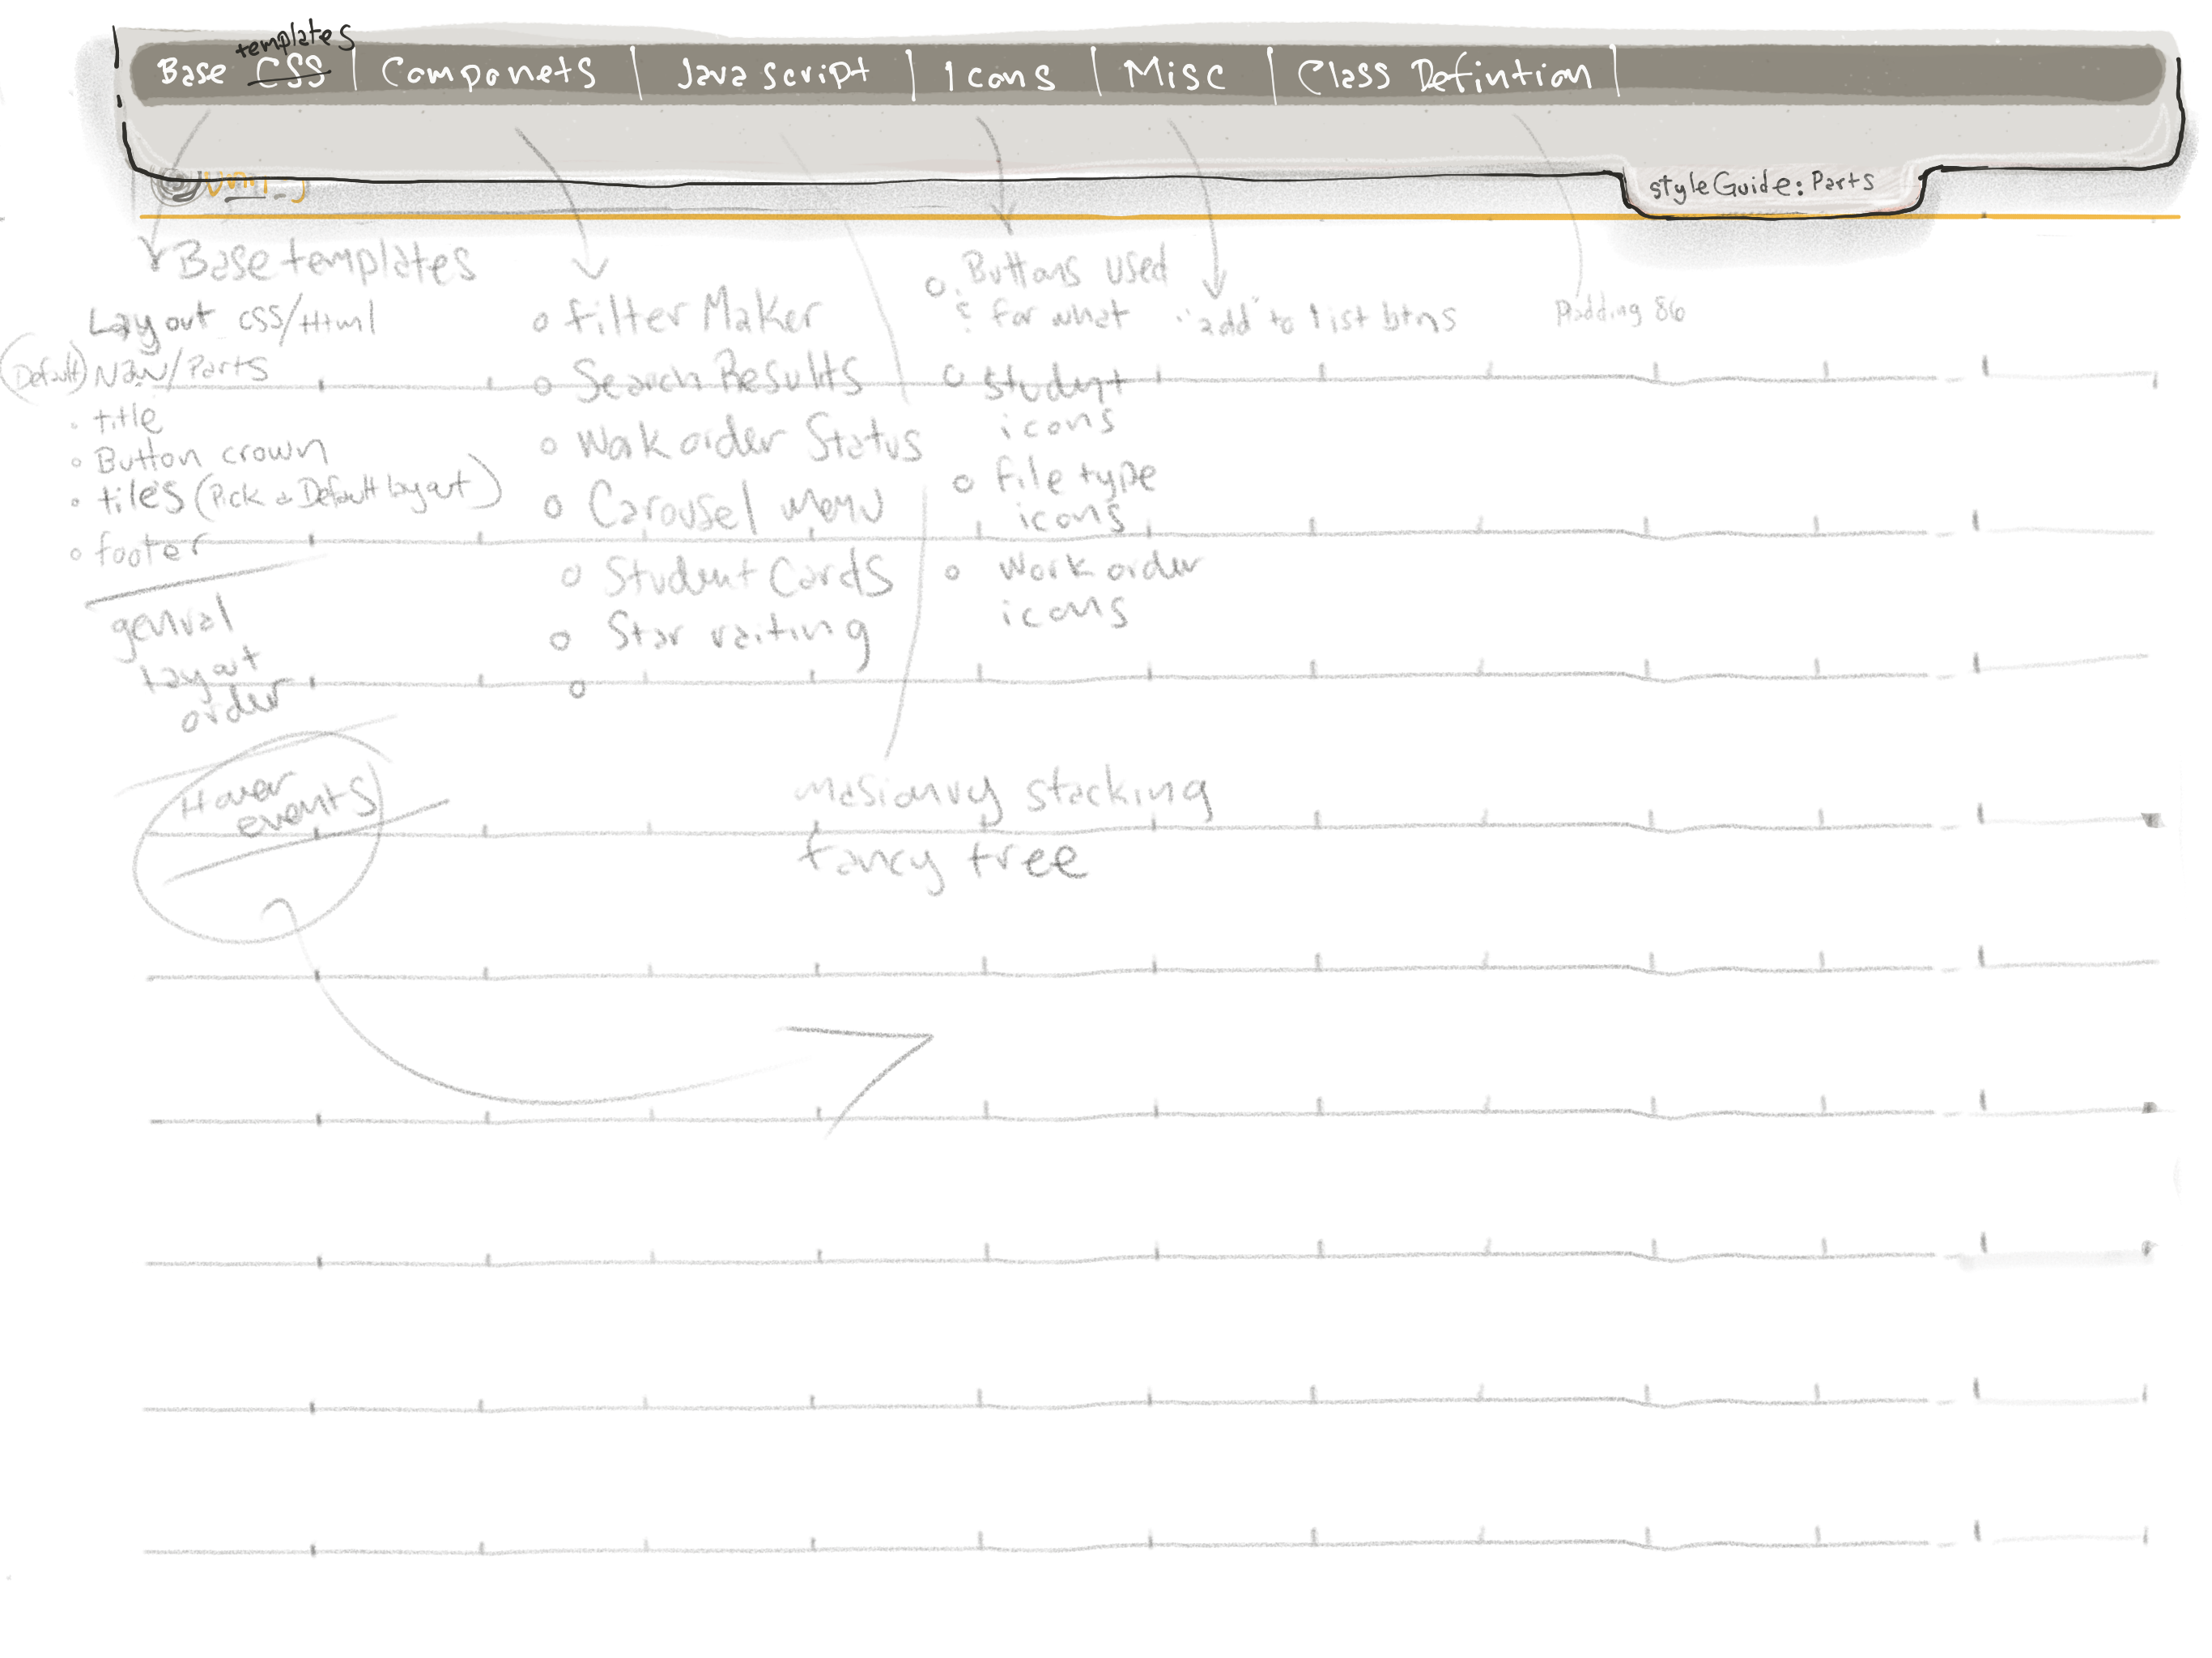 templates
Base CSS | Componets | Java script | Icons | Misc | Class Defintion |
styleGuide: Parts
Base templates
Layout CSS/Html
(Default) Nav/Parts
title
Button crown
tiles (Pick a Default layout)
footer
genral
layout
order
Hover
events
filter Maker
Search Results
Work order Status
Carousel menu
Student Cards
Star raiting
masionry stacking
fancy tree
Buttons used
& for what
student
icons
file type
icons
work order
icons
"add" to list btns
Padding 86